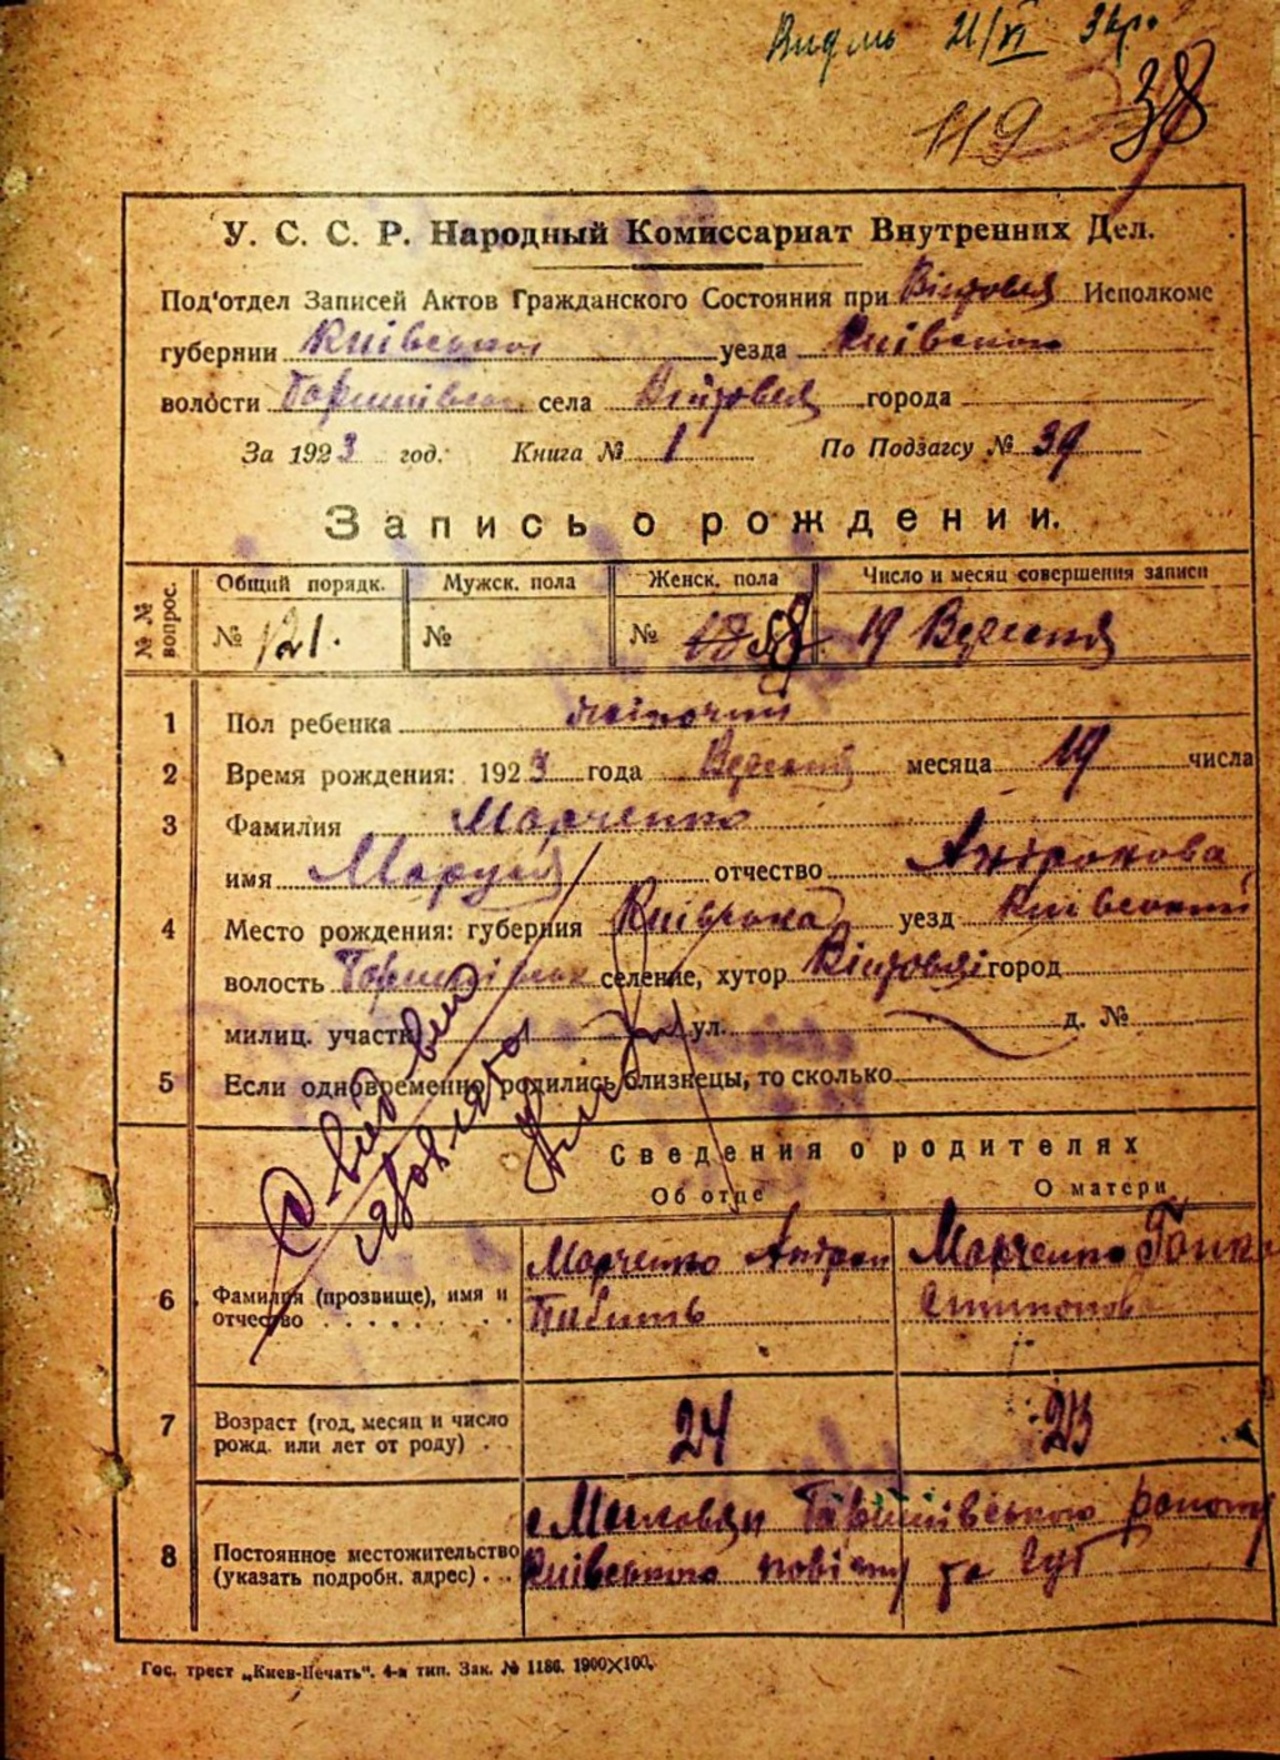 21/VI
119 38
У. С. С. Р. Народный Комиссариат Внутренних Дел.
Под'отдел Записей Актов Гражданского Состояния при Исполкоме
губернии Київської уезда Київського
волости села города
За 1923 год. Книга № 1 По Подзагсу № 39
Запись о рождении.
№ № вопрос. Общий порядк. Мужск. пола Женск. пола Число и месяц совершения записи
№ 121. № № 58 19 Вересня
1 Пол ребенка дівочий
2 Время рождения: 1923 года Вересня месяца 19 числа
3 Фамилия Марченко
имя Маруся отчество Андронова
4 Место рождения: губерния Київська уезд Київский
волость селение, хутор город
милиц. участк ул. д. №
5 Если одновременно родились близнецы, то сколько
Сведения о родителях
Об отце О матери
6 Фамилия (прозвище), имя и отчество . . . . . . . . . Марченко Андрон Марченко
7 Возраст (год, месяц и число рожд. или лет от роду) . 24 23
8 Постоянное местожительство (указать подробн. адрес) . . району
Київського повіту
Гос. трест „Киев-Печать“. 4-я тип. Зак. № 1186. 1900X100.